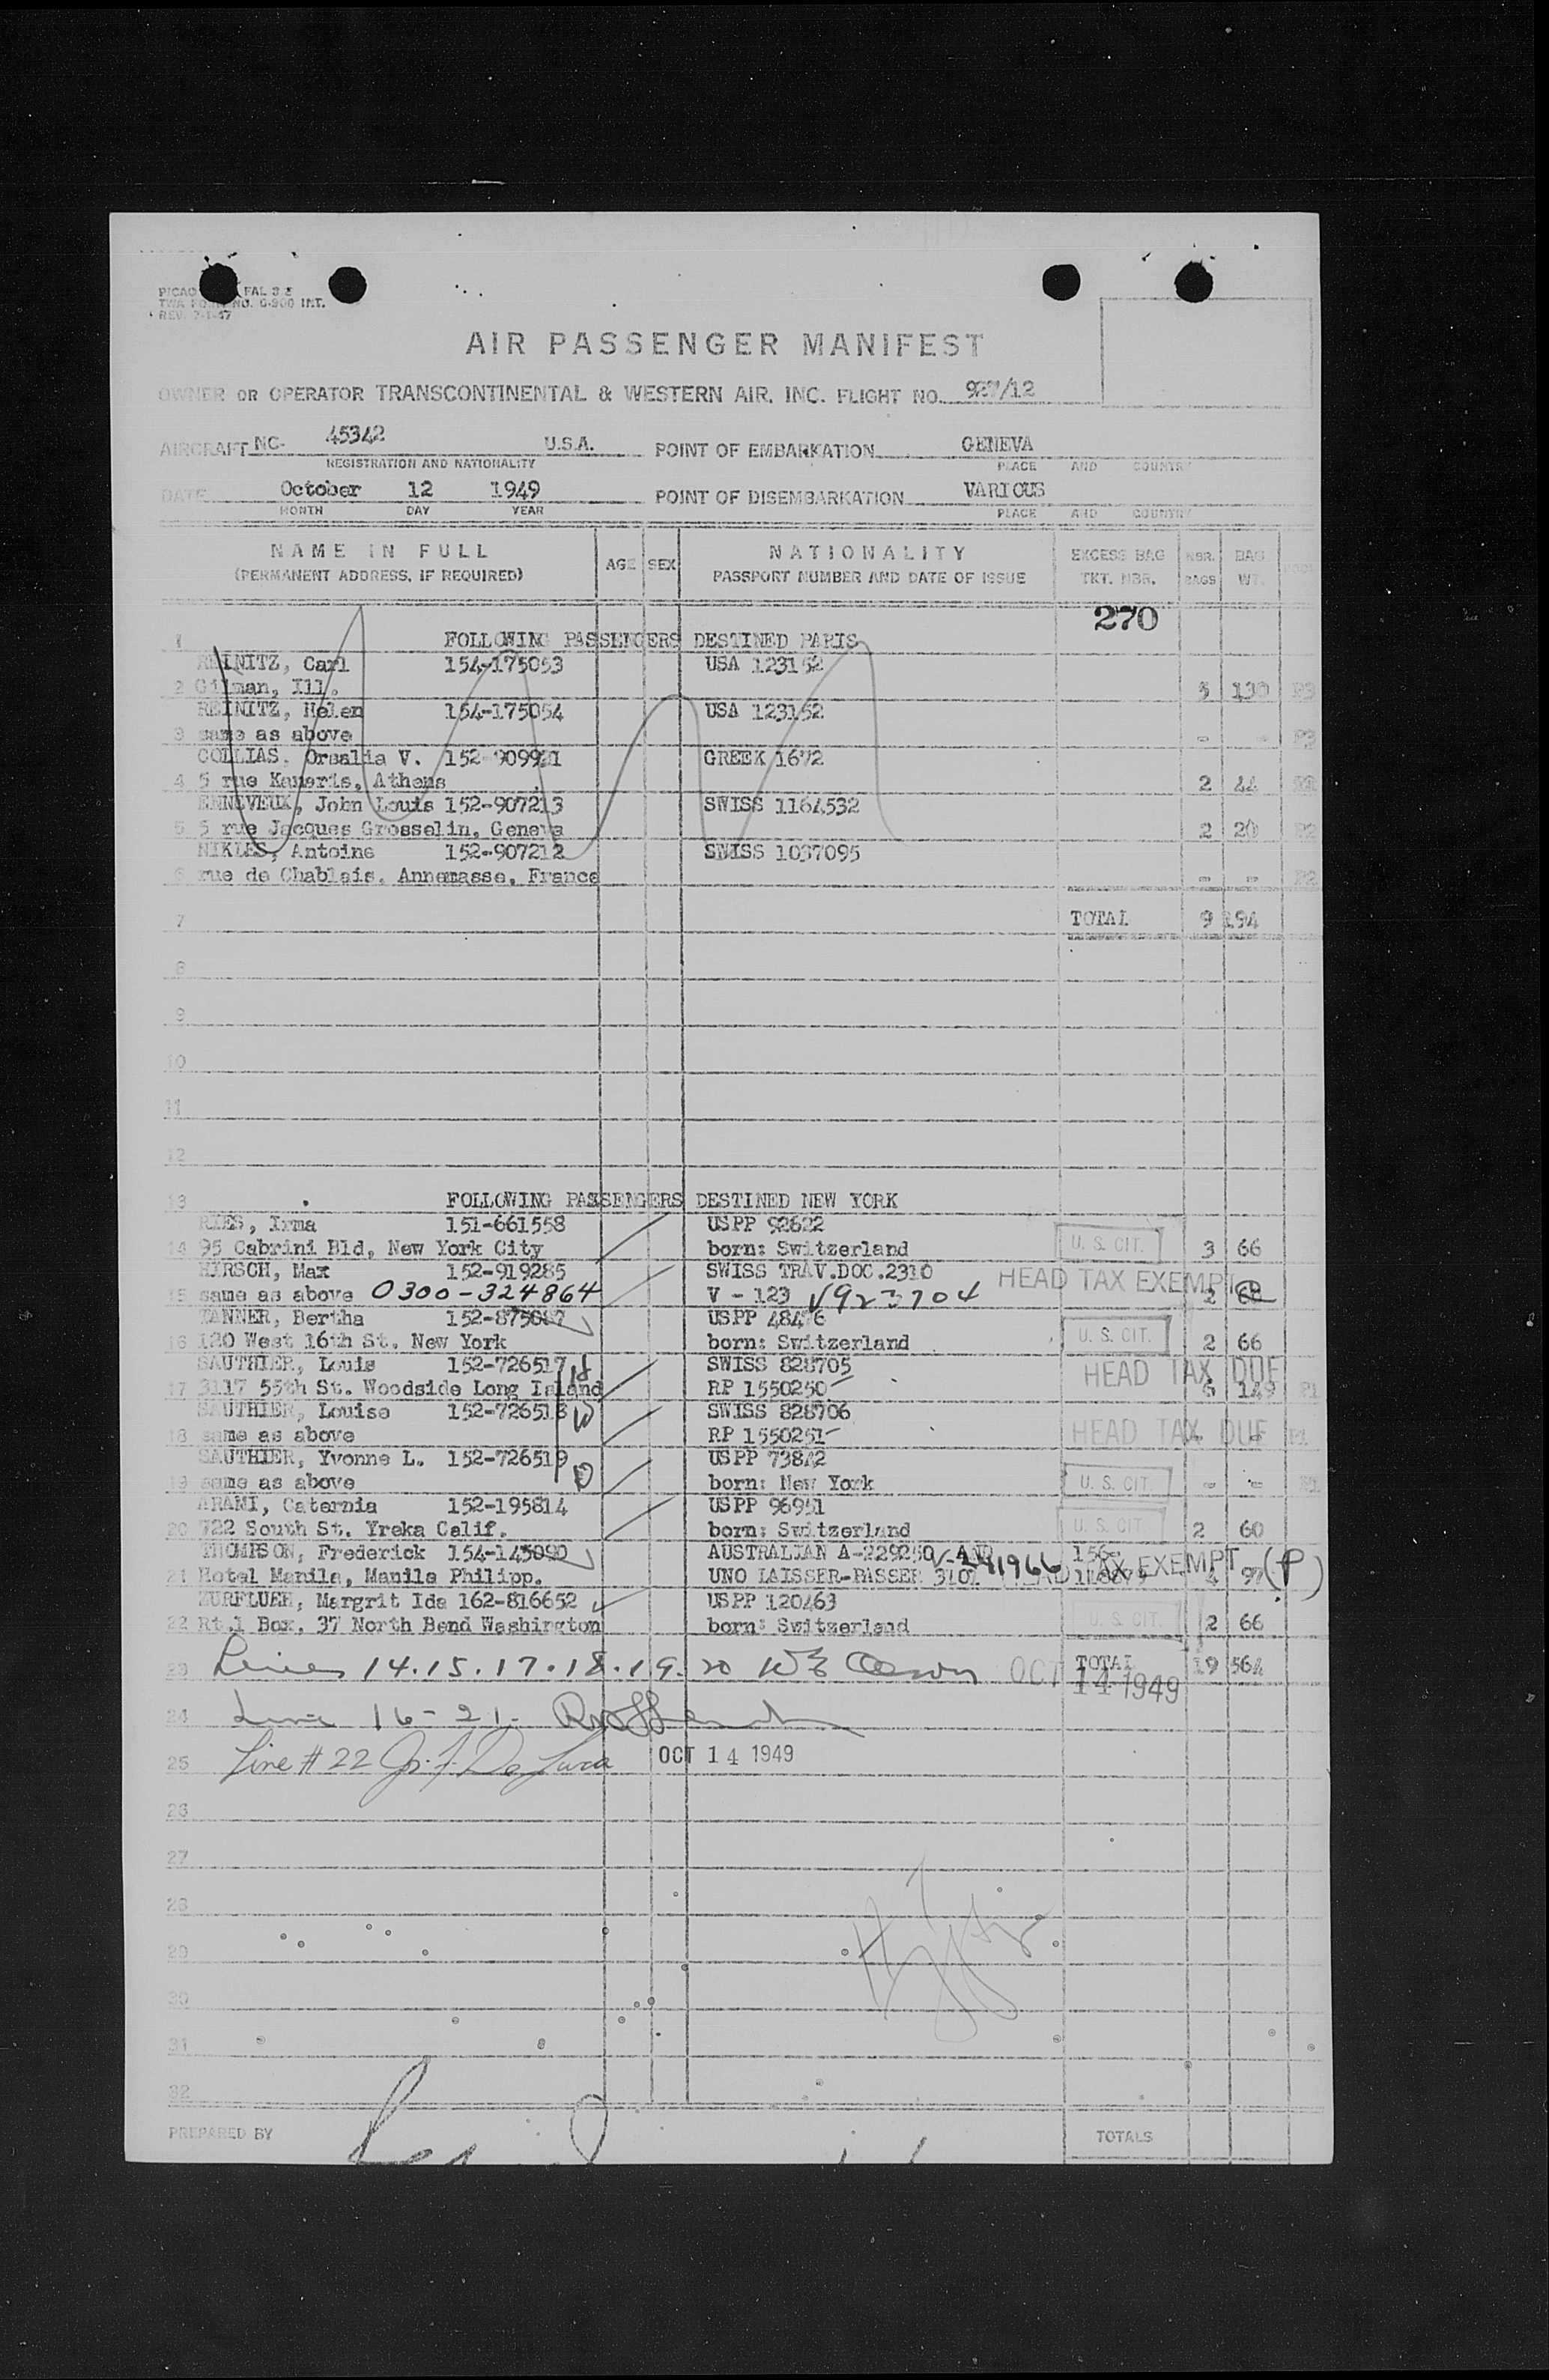 FAL 3 E
TWA FORM NO. O-900 INT.
REV. 7-1-47
AIR PASSENGER MANIFEST
OWNER OR OPERATOR TRANSCONTINENTAL & WESTERN AIR, INC. FLIGHT NO. 927/12
AIRCRAFT NC- 45342 U.S.A. POINT OF EMBARKATION GENEVA
REGISTRATION AND NATIONALITY PLACE AND COUNTRY
DATE October 12 1949 POINT OF DISEMBARKATION VARIOUS
MONTH DAY YEAR PLACE AND COUNTRY
NAME IN FULL AGE SEX NATIONALITY EXCESS BAG NBR. BAG
(PERMANENT ADDRESS, IF REQUIRED) PASSPORT NUMBER AND DATE OF ISSUE TKT. NBR. BAGS WT.
270
1 FOLLOWING PASSENGERS DESTINED PARIS
REINITZ, Carl 154-175053 USA 123152
2 Gilman, Ill. 5 130 P3
REINITZ, Helen 154-175054 USA 123152
3 same as above - - P3
COLLIAS, Orsalia V. 152-909921 GREEK 1672
4 5 rue Kanaris, Athens 2 44
John Louis 152-907213 SWISS 1164532
5 5 rue Jacques Grosselin, Geneva 2 20 P2
NIKLES, Antoine 152-907212 SWISS 1037095
6 rue de Chablais, Annemasse, France - - P2
7 TOTAL 9 194
8
9
10
11
12
13 FOLLOWING PASSENGERS DESTINED NEW YORK
RIES, Irma 151-661558 USPP 92622
14 95 Cabrini Bld, New York City born: Switzerland U. S. CIT. 3 66
HIRSCH, Max 152-919285 SWISS TRAV.DOC.2310 HEAD TAX EXEMPT
15 same as above 0300-324864 V - 123 V923704 2
TANNER, Bertha 152-875087 USPP 48476
16 120 West 16th St. New York born: Switzerland U. S. CIT. 2 66
SAUTHIER, Louis 152-726517 SWISS 828705 HEAD TAX DUE
17 3117 55th St. Woodside Long Island RP 1550250 5 149 P1
SAUTHIER, Louise 152-726518 W SWISS 828706
18 same as above RP 1550251 HEAD TAX DUE P1
SAUTHIER, Yvonne L. 152-726519 D USPP 73842
19 same as above born: New York U. S. CIT. - - P1
ARAMI, Caternia 152-195814 USPP 96951
20 722 South St. Yreka Calif. born: Switzerland U. S. CIT. 2 60
THOMPSON, Frederick 154-145090 AUSTRALIAN A-229250 AND V-241966 156
21 Hotel Manila, Manila Philipp. UNO LAISSER-PASSER 3101 HEAD TAX EXEMPT 4 97 (P)
ZURFLUEH, Margrit Ida 162-816652 USPP 120463
22 Rt.1 Box, 37 North Bend Washington born: Switzerland U. S. CIT. 2 66
23 Lines 14.15.17.18.19.20 OCT 14 1949 TOTAL 19 564
24 Line 16-21.
25 Line # 22 De Luca OCT 14 1949
26
27
28
29
30
31
32
PREPARED BY TOTALS